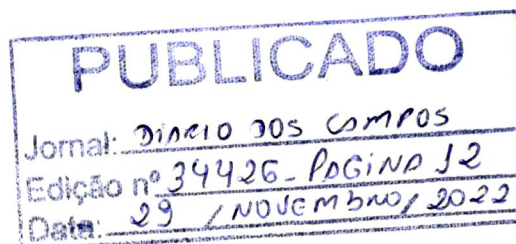 PUBLICADO
Jornal: DIARIO DOS CAMPOS
Edição nº 34426 - PAGINA 12
Data: 29 / NOVEMBRO / 2022